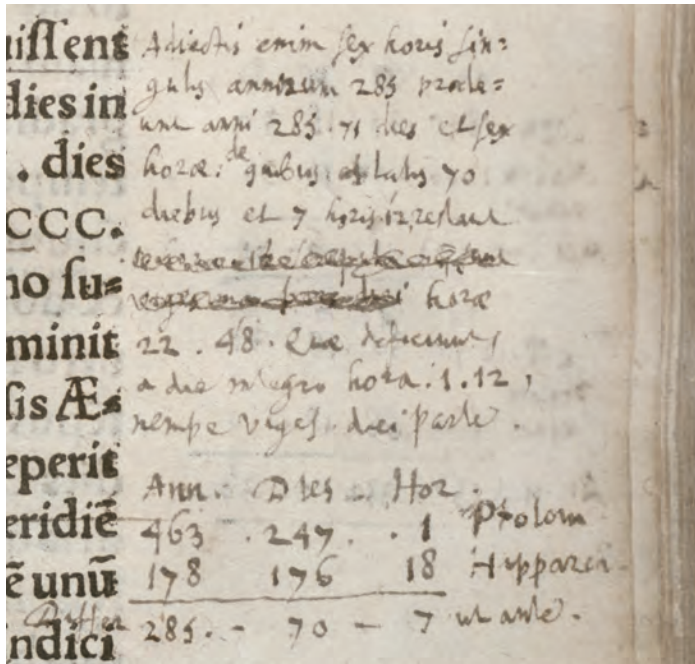 uiſſent
dies in
. dies
CCC.
no ſu=
minit
ſis Æ=
eperit
eridiē
ē unū
ndici
Adiectis enim sex horis sin=
gulis annorum 285 prode=
unt anni 285. 71 dies et sex
horæ: de quibus ablatis 70
diebus et 7 horis 12, restant
horæ
22 . 48. Quæ deficiunt
a die integro hora. 1.12,
nempe viges. diei parte.
Ann. Dies. Hor.
463 . 247 . . 1 Ptolom
178 176 18 Hipparch.
Differ 285. - 70 - 7 ut ante.